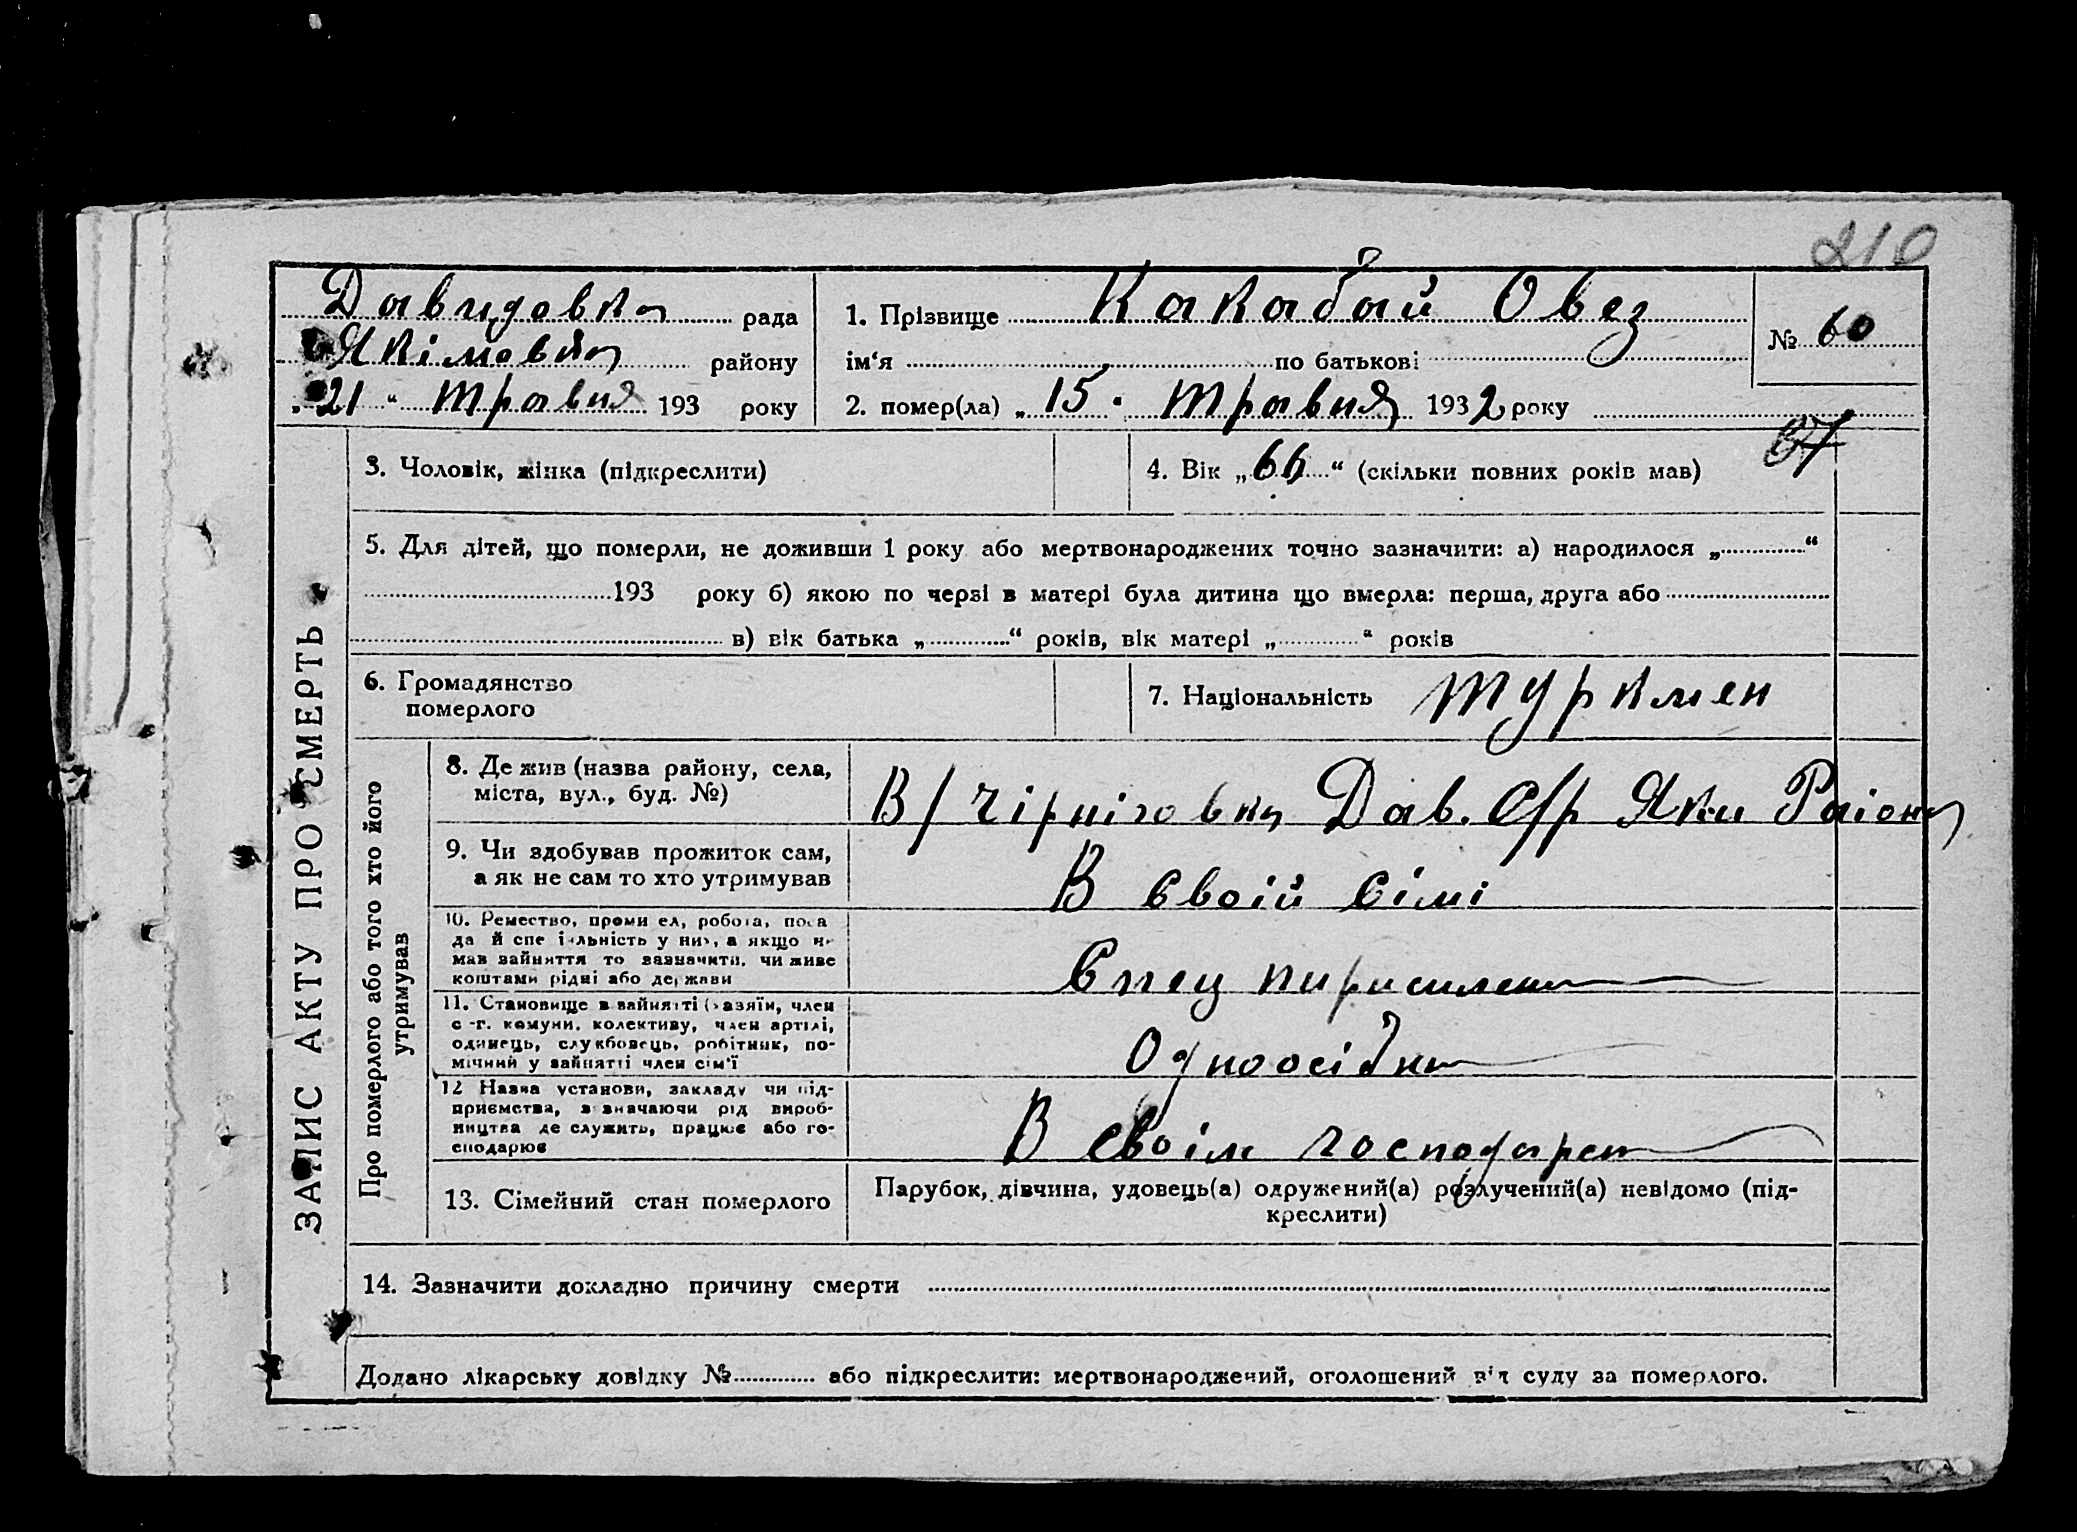 210
Давидовка рада
Якімовка району
„21“ травня 193 року
1. Прізвище Какабай Овез
ім‘я по батькові
2. помер(ла) „15“ травня 1932 року
№ 60
ЗАПИС АКТУ ПРО СМЕРТЬ
3. Чоловік, жінка (підкреслити)
4. Вік „66“ (скільки повних років мав)
5. Для дітей, що померли, не доживши 1 року або мертвонароджених точно зазначити: а) народилося „ “
193 року б) якою по черзі в матері була дитина що вмерла: перша, друга або
в) вік батька „ “ років, вік матері „ “ років
6. Громадянство
померлого
7. Національність туркмен
Про померлого або того хто його
утримував
8. Де жив (назва району, села,
міста, вул., буд. №)
В/чірніговка Дав. С/р Яки Раіона
9. Чи здобував прожиток сам,
а як не сам то хто утримував
В своій сімі
10. Ремество, промисел, робота, поса
да й спеціяльність у них, а якщо не
мав зайняття то зазначити, чи живе
коштами рідні або держави
Спец
11. Становище в зайнятті (хазяїн, член
с.-г. комуни, колективу, член артілі,
одинець, службовець, робітник, по-
мічний у зайнятті член сім'ї
Одноосібни
12 Назва установи, закладу чи під-
приємства, зазначаючи рід вироб-
ництва де служить, працює або го-
сподарює
В своім господарст
13. Сімейний стан померлого
Парубок, дівчина, удовець(а) одружений(а) розлучений(а) невідомо (під-
креслити)
14. Зазначити докладно причину смерти
Додано лікарську довідку № або підкреслити: мертвонароджений, оголошений від суду за померлого.